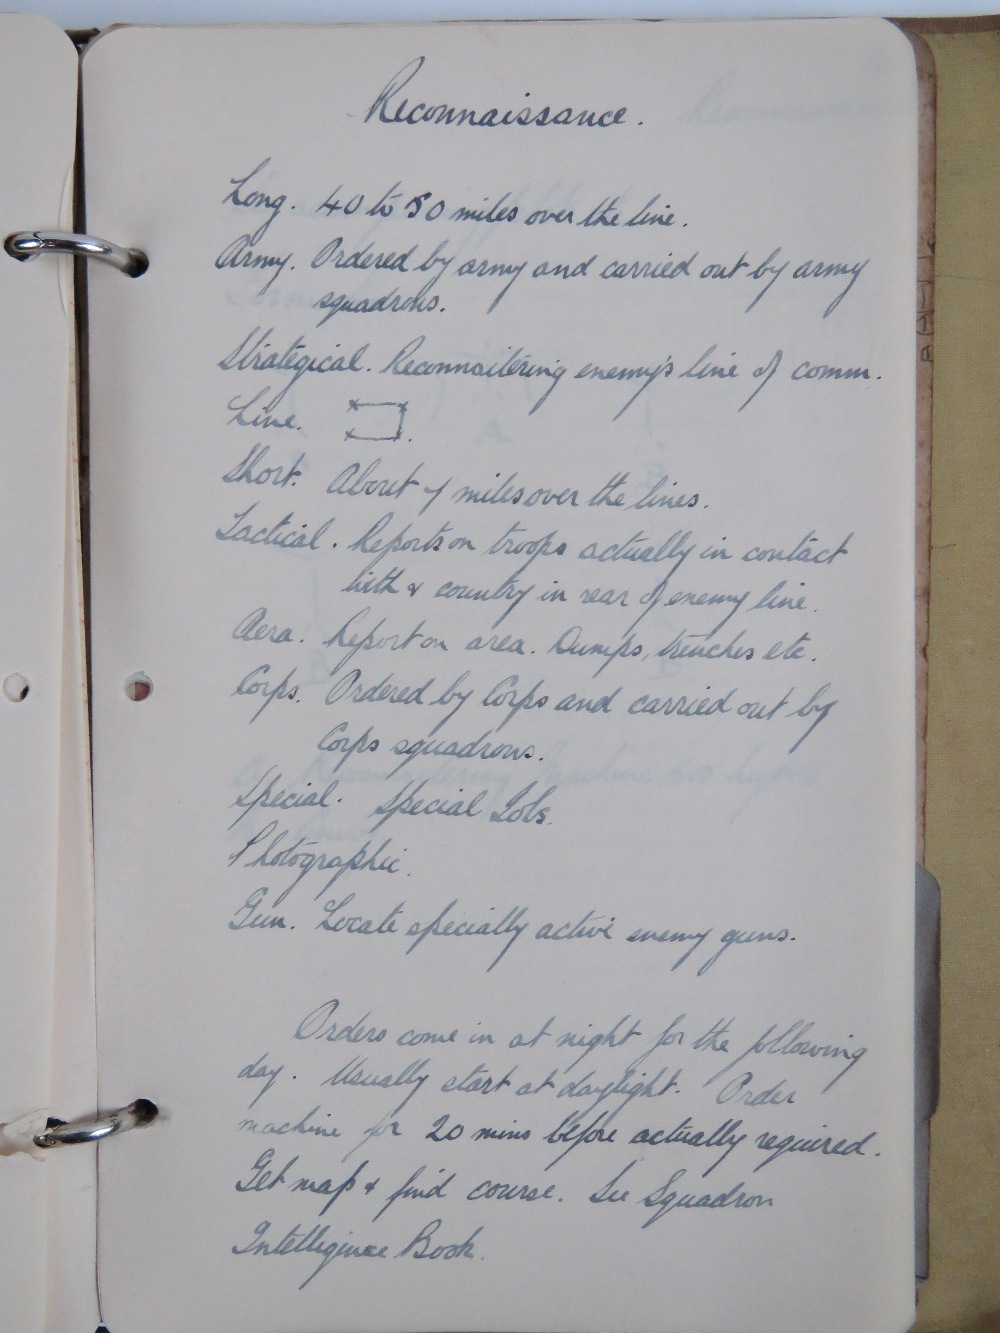 Reconnaissance.
Long. 40 to 50 miles over the line.
Army. Ordered by army and carried out by army
squadrons.
Strategical. Reconnoitering enemy's line of comm.
Line.
Short. About miles over the lines.
Tactical. Reports on troops actually in contact
with & country in rear of enemy line.
Aera. Report on area. Dumps, trenches etc.
Corps. Ordered by Corps and carried out by
Corps squadrons.
Special. Special Jobs.
Photographic.
Gun. Locate specially active enemy guns.
Orders come in at night for the following
day. Usually start at daylight. Order
machine for 20 mins before actually required.
Get map & find course. See Squadron
Intelligence Book.